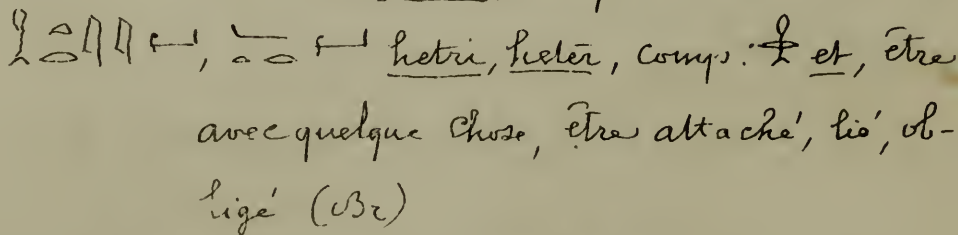 𓎛𓏏𓂋𓇋𓇋, 𓏏𓂋 hetri, heter, comp: et, être
avec quelque chose, être attaché, lié, ob-
ligé (Br)